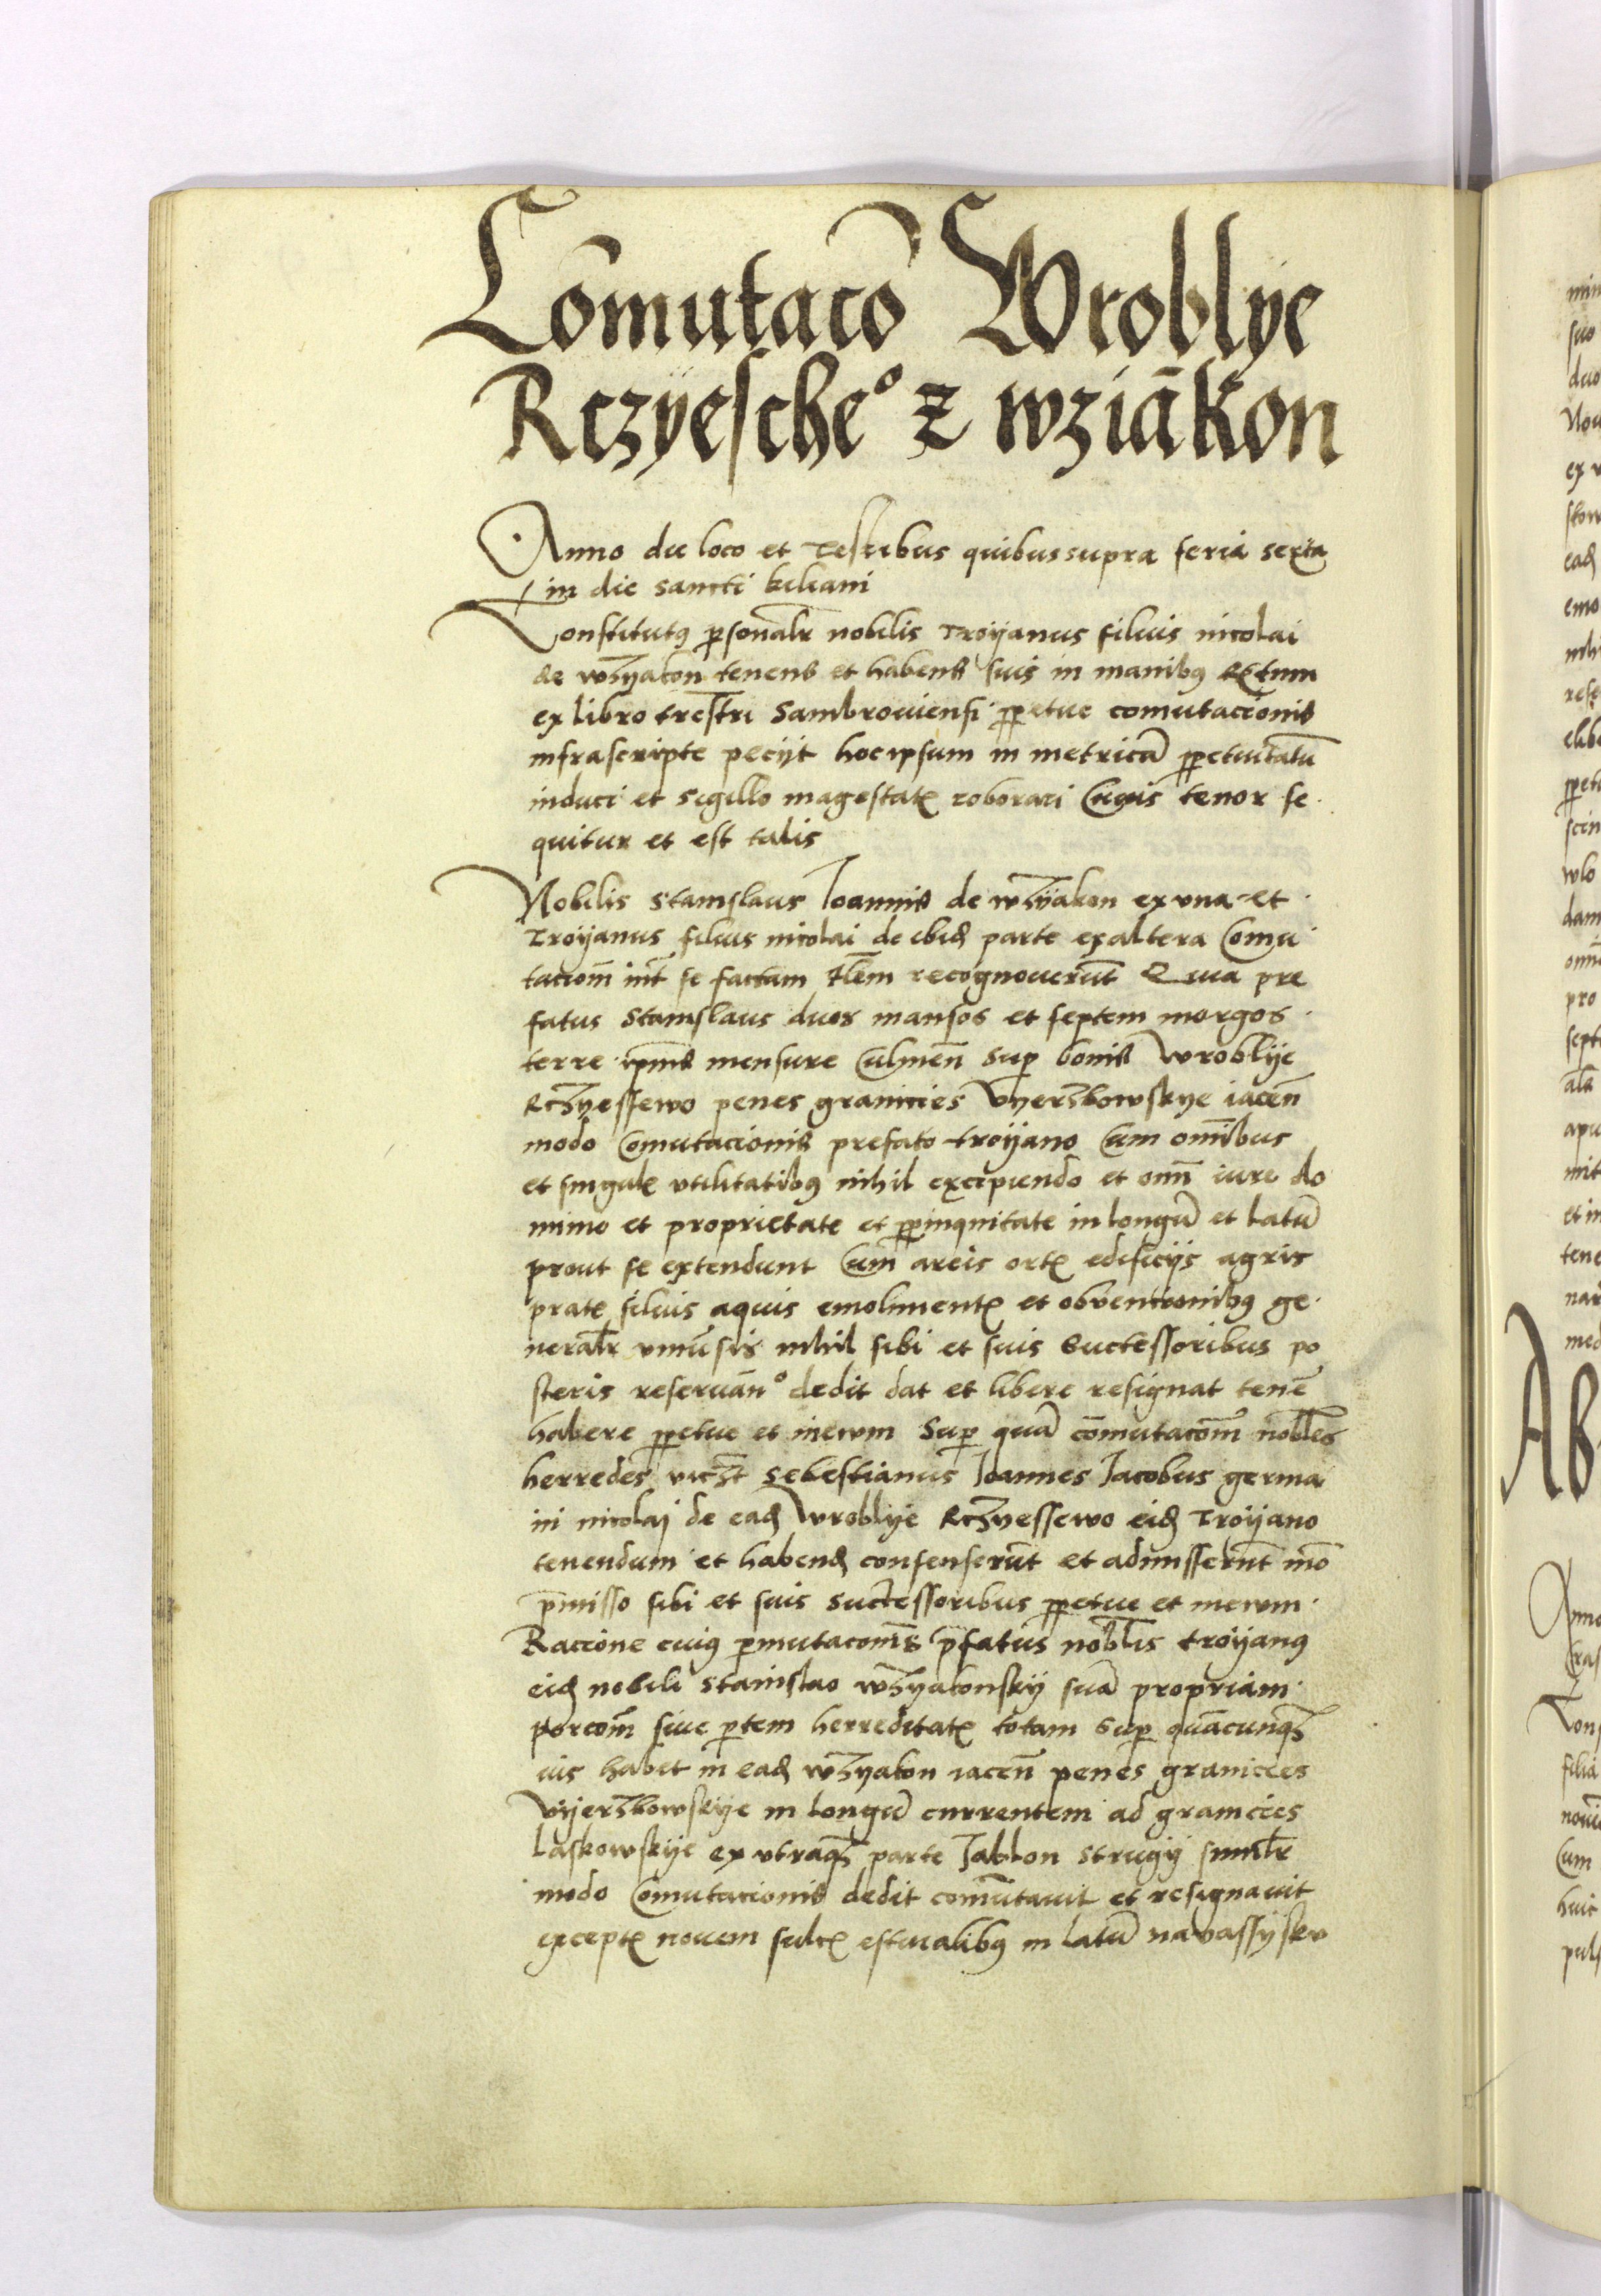 Com̄utacō Wroblye
Rczyescheº z wziākon
Anno die loco et testibus quibus supra feria sexta
in die sancti kiliani
Constitutꝰ ꝑsonalr̄ nobilis Troyanus filius nicolai
de wzyakon tenens et habens suis in manibꝰ extm̄
ex libro trestri Sambroviensi ꝑpetue comutacionis
infrascripte peciit hoc ipsum in metricā ꝑpetuitatū
induci et sigillo magestatꝭ roborari Cuius tenor se
quitur et est talis
Nobilis Stanislaus Joannis de wzyakon ex una et
Troyanus filius nicolai de ibidꝫ parte ex altera Comu
tacionē int̄ se factam tl̄em recognoverūt Qua pre
fatus Stanislaus duos mansos et septem morgos
terre ip̄ius mensure Culmeñ Suꝑ bonis Wroblye
Rczyessewo penes granicies Vyerzbowskye iaceñ
modo Comutacionis prefato troyano Cum om̄ibus
et singulꝭ utilitatibꝰ nihil excipiendo et om̄i iure do
minio et proprietate et ꝓpinquitate in longū et latū
prout se extendunt Cum areis ortꝭ edificiis agris
pratꝭ silvis aquis emolimentꝭ et obventionibꝰ ge
neralr̄ universis nihil sibi et suis successoribus po
steris reservanº dedit dat et libere resignat tenē
habere ꝑpetue et inevum Suꝑ quā com̄utacōm nobles
herredes vidzt Sebestianus Joannes Jacobus germa
ni nicolai de eadꝫ Wroblye Rczyessewo eidꝫ Troyano
tenendum et habendꝫ consenserūt et admisserūt mō
p̄misso sibi et suis successoribus ꝑpetue et inevum
Raccione cuiꝰ ꝑmutacōnis p̄fatus nobl̄is troyanꝰ
eidꝫ nobili Stanislao wzyakonsky suā propriam
porcōm sive ꝑtem herreditatꝭ totam Suꝑ quācunqꝫ
ius habet in eadꝫ wzyakon iaceñ penes granicies
Vyerzbowskye in longū currentem ad granicies
Laskowskye ex utraqꝫ parte Jablon strugy similr̄
modo Comutacionis dedit comutavit et resignavit
exceptꝭ novem sulcꝭ estivalibꝰ in latū navassysku